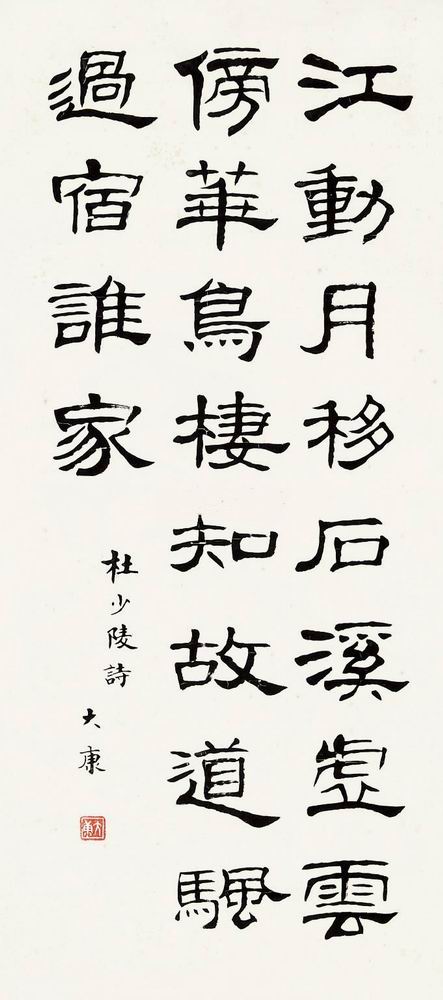 江動月移石溪虚雲
傍華鳥棲知故道颿
過宿誰家
杜少陵詩
大康